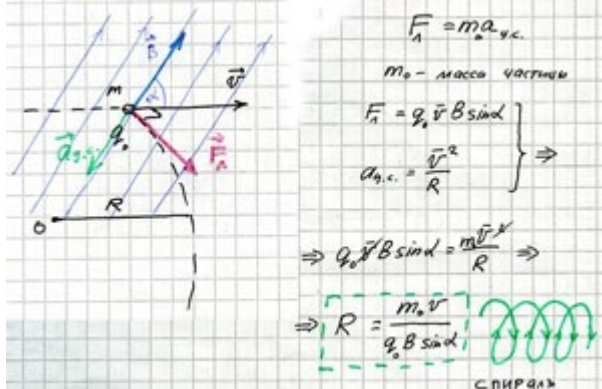 B⃗
m
α
v⃗
q₀
a⃗ц.с.
F⃗л
R
O
Fл = m₀aц.с.
m₀ - масса частицы
Fл = q₀ v̄ B sinα
aц.с. = v̄²/R
⇒
⇒ q₀v̄B sinα = m v̄²/R ⇒
⇒ R = m₀v/q₀B sinα
спираль